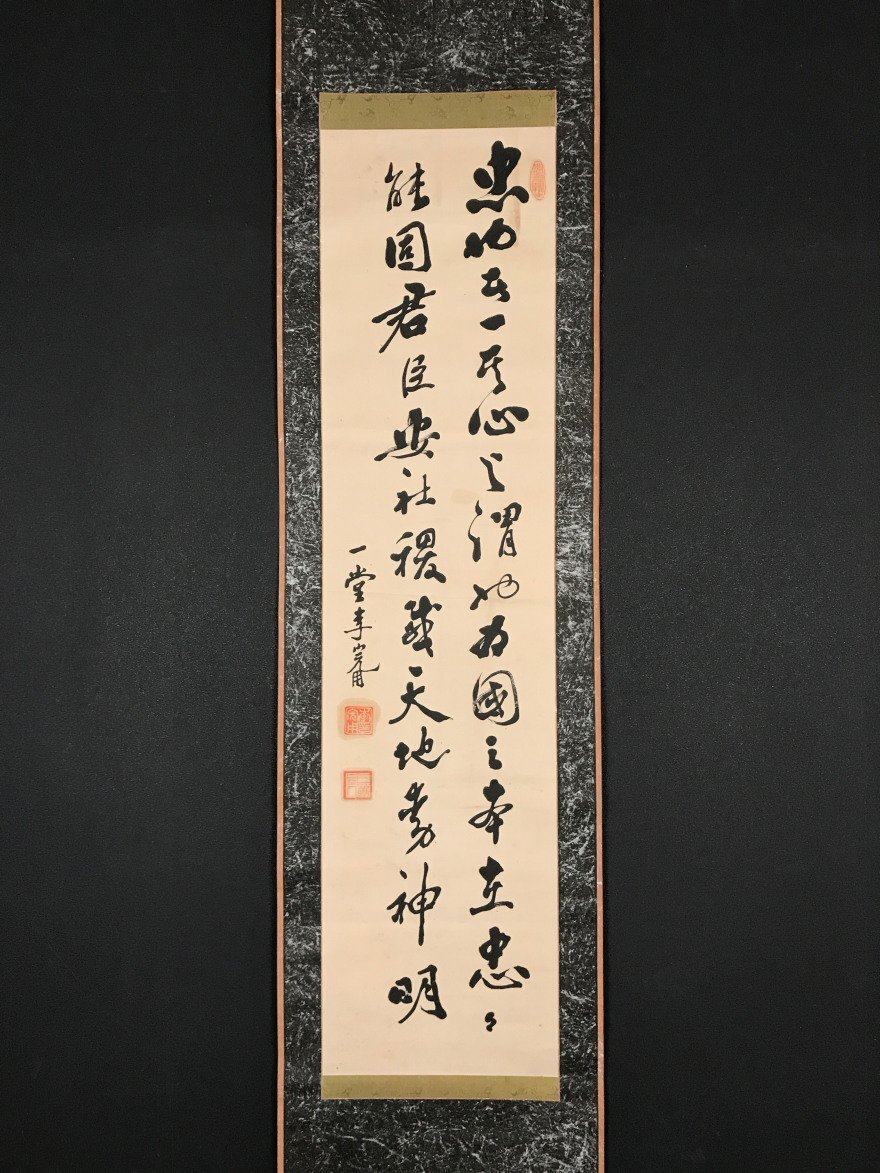 忠也者一其心之謂也為國之本在忠々
能固君臣安社稷感天地動神明
一堂李完用